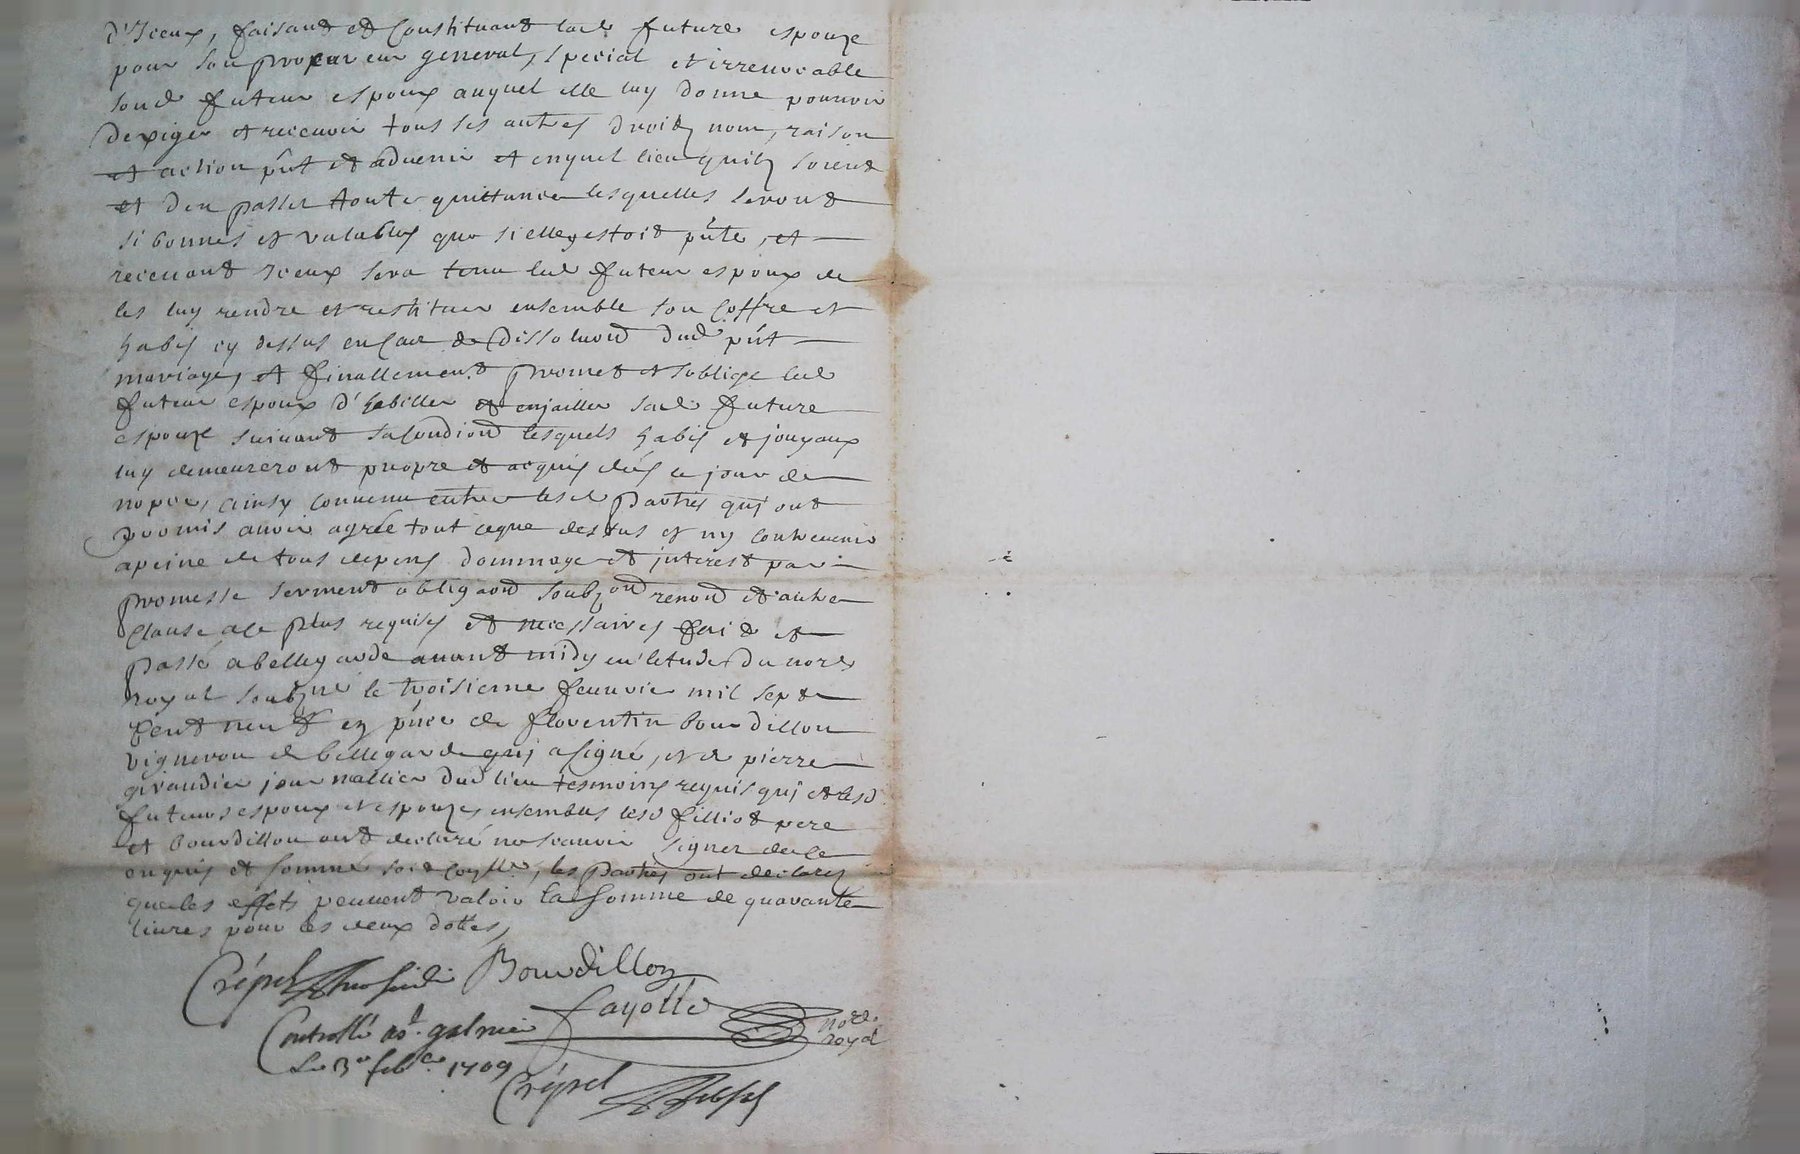 d'Iceux, faisant et Constituant lad future espouze
pour son procureur general, special et irrevocable
sond futeur espoux auquel elle luy donne pouvoir
dexiger et recevoir tous ses autres droitz nom, raison
et action pnt et advenir et enquel lieu quilz soient
et d'en passer toute quittance lesquelles seront
si bonnes et valables que si elle y estoit pnte, et
recevant Iceux sera tenu led futeur espoux de
les luy rendre et restituer ensemble son Coffre et
habis cy dessus en Cas de dissoluon dud pnt
mariage, et finallement promet et soblige led
futeur espoux d'habiller et enjailler sad future
espouze suivant sa Condion lesquels habis et joyaux
luy demeureront propre et acquis dés le jour de
nopces, ainsy convenu entre lesd parties qui ont
promis avoir agrée tout ceque dessus et ny contrevenir
apeine de tous depens dommage et interest par
promesse serment obligaon soubzon renon et autre
Clause ace plus requises et necessaires fait et
passé a bellegarde avant midy en letude du nore
royal soubzné le troisieme feuvrie mil sept
Cent neuf en pnce de florentin bourdillon
vigneron de bellegarde qui a signé, et de pierre
giraudier journallier dud lieu tesmoins requis qui et lesd
futeurs espoux et espouze, ensembles lesd filliot pere
et bourdillon ont declaré ne scavoir signer de ce
enquis et sommé soit Conllé, les parties ont declarés
que les effets peuvent valoir la somme de quarante
livres pour les deux dottes,
Crépet Bourdillon
fayolle
Controllé a st galmier nore royal
Le 3e feb. 1709
Crépet